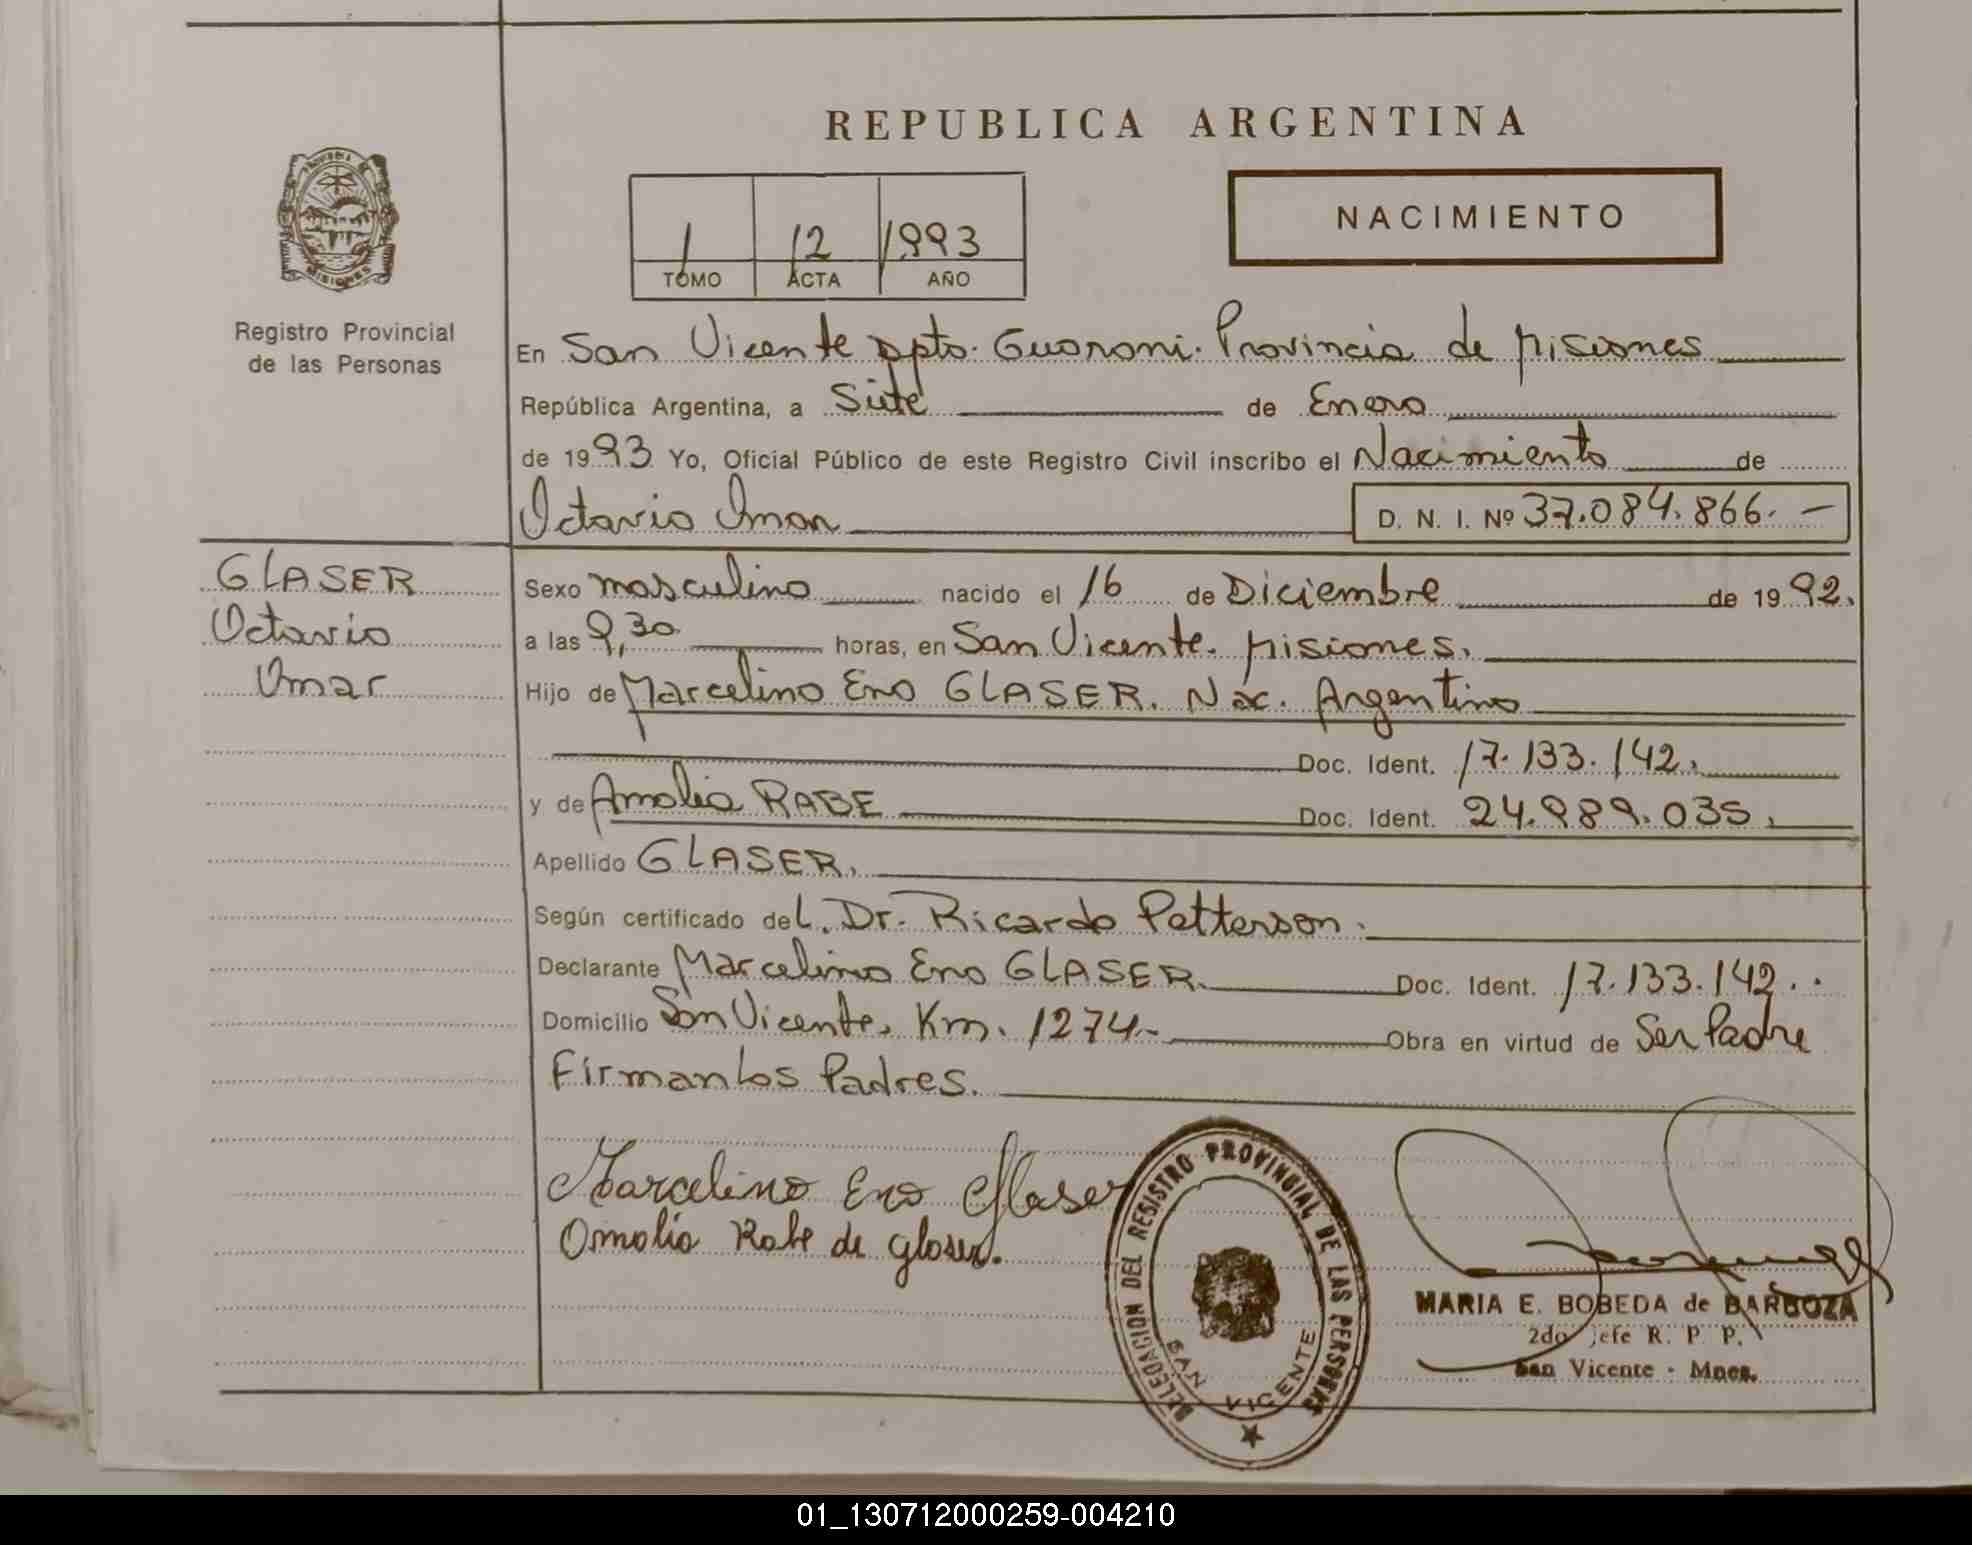 REPUBLICA ARGENTINA
MISIONES
Registro Provincial
de las Personas
1 12 1993
TOMO ACTA AÑO
NACIMIENTO
En San Vicente Dpto. Guarani. Provincia de Misiones
República Argentina, a Siete de Enero
de 1993 Yo, Oficial Público de este Registro Civil inscribo el Nacimiento de
Octavio Omar
D. N. I. Nº 37.084.866.-
GLASER
Octavio
Omar
Sexo masculino nacido el 16 de Diciembre de 1992.
a las 9,30 horas, en San Vicente. Misiones.
Hijo de Marcelino Eno GLASER. Nac. Argentino
Doc. Ident. 17.133.142.
y de Amalia RABE Doc. Ident. 24.989.035.
Apellido GLASER.
Según certificado del. Dr. Ricardo Petterson.
Declarante Marcelino Eno GLASER. Doc. Ident. 17.133.142..
Domicilio San Vicente. Km. 1274- Obra en virtud de Ser Padre
Firman los Padres.
Marcelino Eno Glaser
Omalia Rabe de glaser.
DELEGACION DEL REGISTRO PROVINCIAL DE LAS PERSONAS
SAN VICENTE
MARIA E. BOBEDA de BARBOZA
2do jefe R. P. P.
San Vicente - Mnes.
01_130712000259-004210